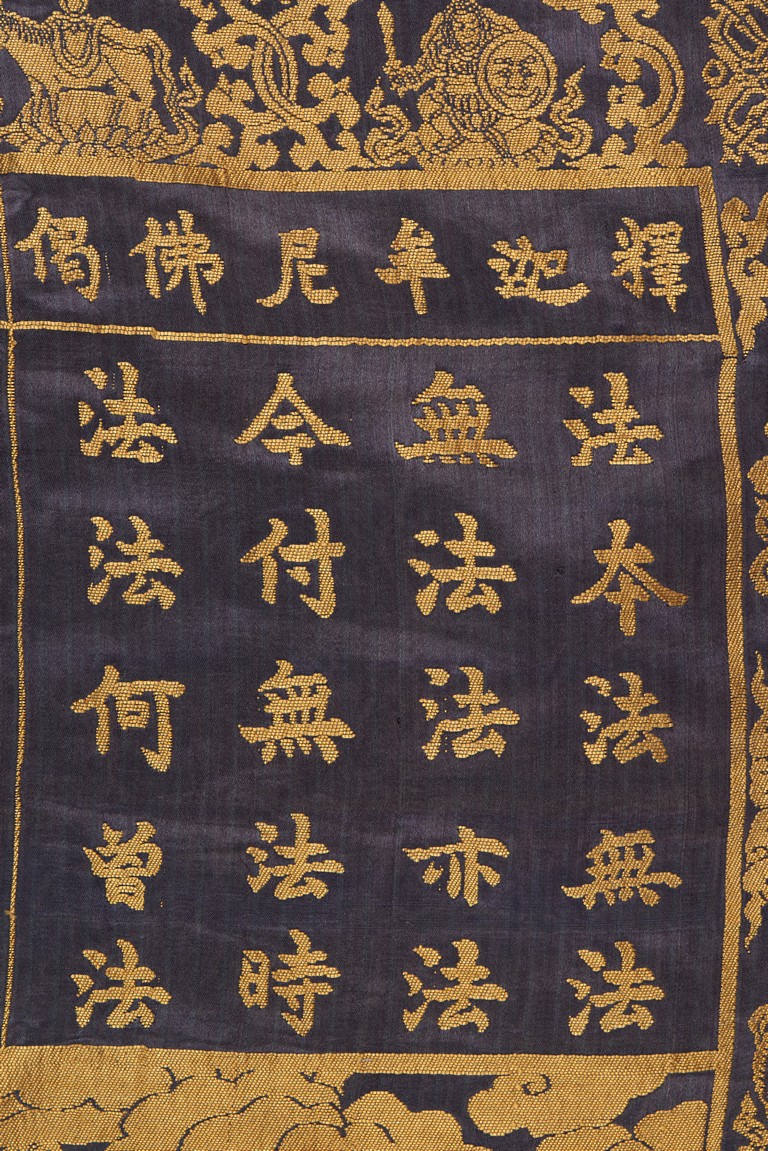 釋迦牟尼佛偈
法本法無法
無法法亦法
今付無法時
法法何曾法